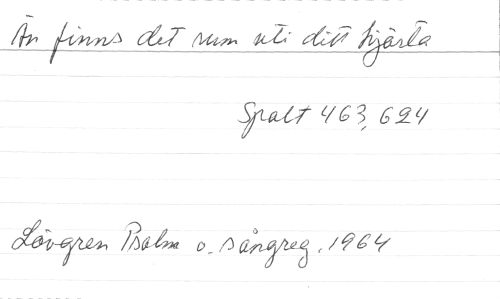 Än finns det rum uti ditt hjärta
Spalt 463, 624
Lövgren Psalm o. sångreg. 1964